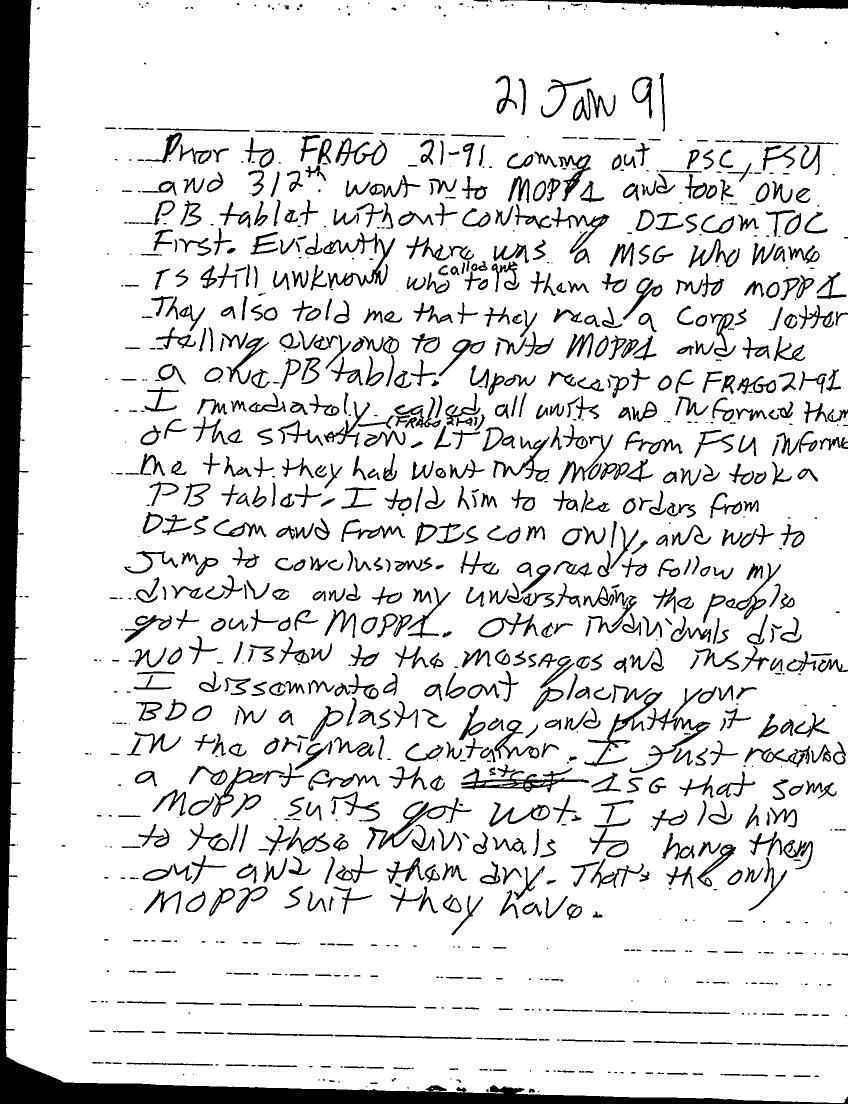 21 Jan 91
Prior to FRAGO 21-91 coming out PSC, FSU
and 312th went into MOPP1 and took one
PB tablet without contacting DISCOM TOC
First. Evidently there was a MSG who name
is still unknown who called and told them to go into MOPP1
They also told me that they read a Corps letter
telling everyone to go into MOPP1 and take
a one PB tablet. Upon receipt of FRAGO 21-91
I immediately called all units and informed them
of the situation (FRAGO 21-91). LT Daughtory from FSU informe
me that they had went into MOPP1 and took a
PB tablet. I told him to take orders from
DISCOM and from DISCOM only, and not to
jump to conclusions. He agreed to follow my
directive and to my understanding the people
got out of MOPP1. Other individuals did
not listen to the messages and instruction
I dissemmated about placing your
BDO in a plastic bag, and putting it back
in the original container. I just received
a report from the 1SG that some
MOPP suits got wet. I told him
to tell those individuals to hang them
out and let them dry. That's the only
MOPP suit they have.